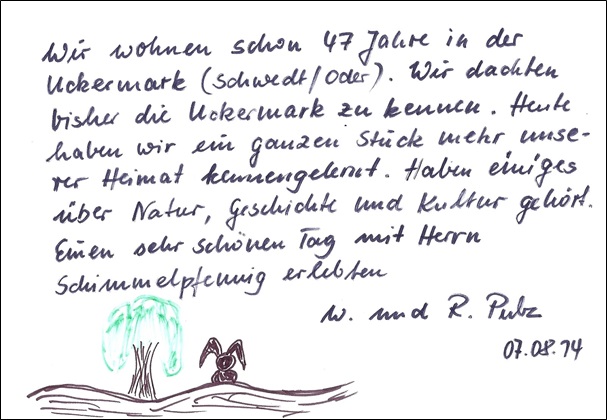 Wir wohnen schon 47 Jahre in der
Uckermark (Schwedt/Oder). Wir dachten
bisher die Uckermark zu kennen. Heute
haben wir ein ganzen Stück mehr unse-
rer Heimat kennengelernt. Haben einiges
über Natur, Geschichte und Kultur gehört.
Einen sehr schönen Tag mit Herrn
Schimmelpfennig erlebten
W. und R.
07.08.14